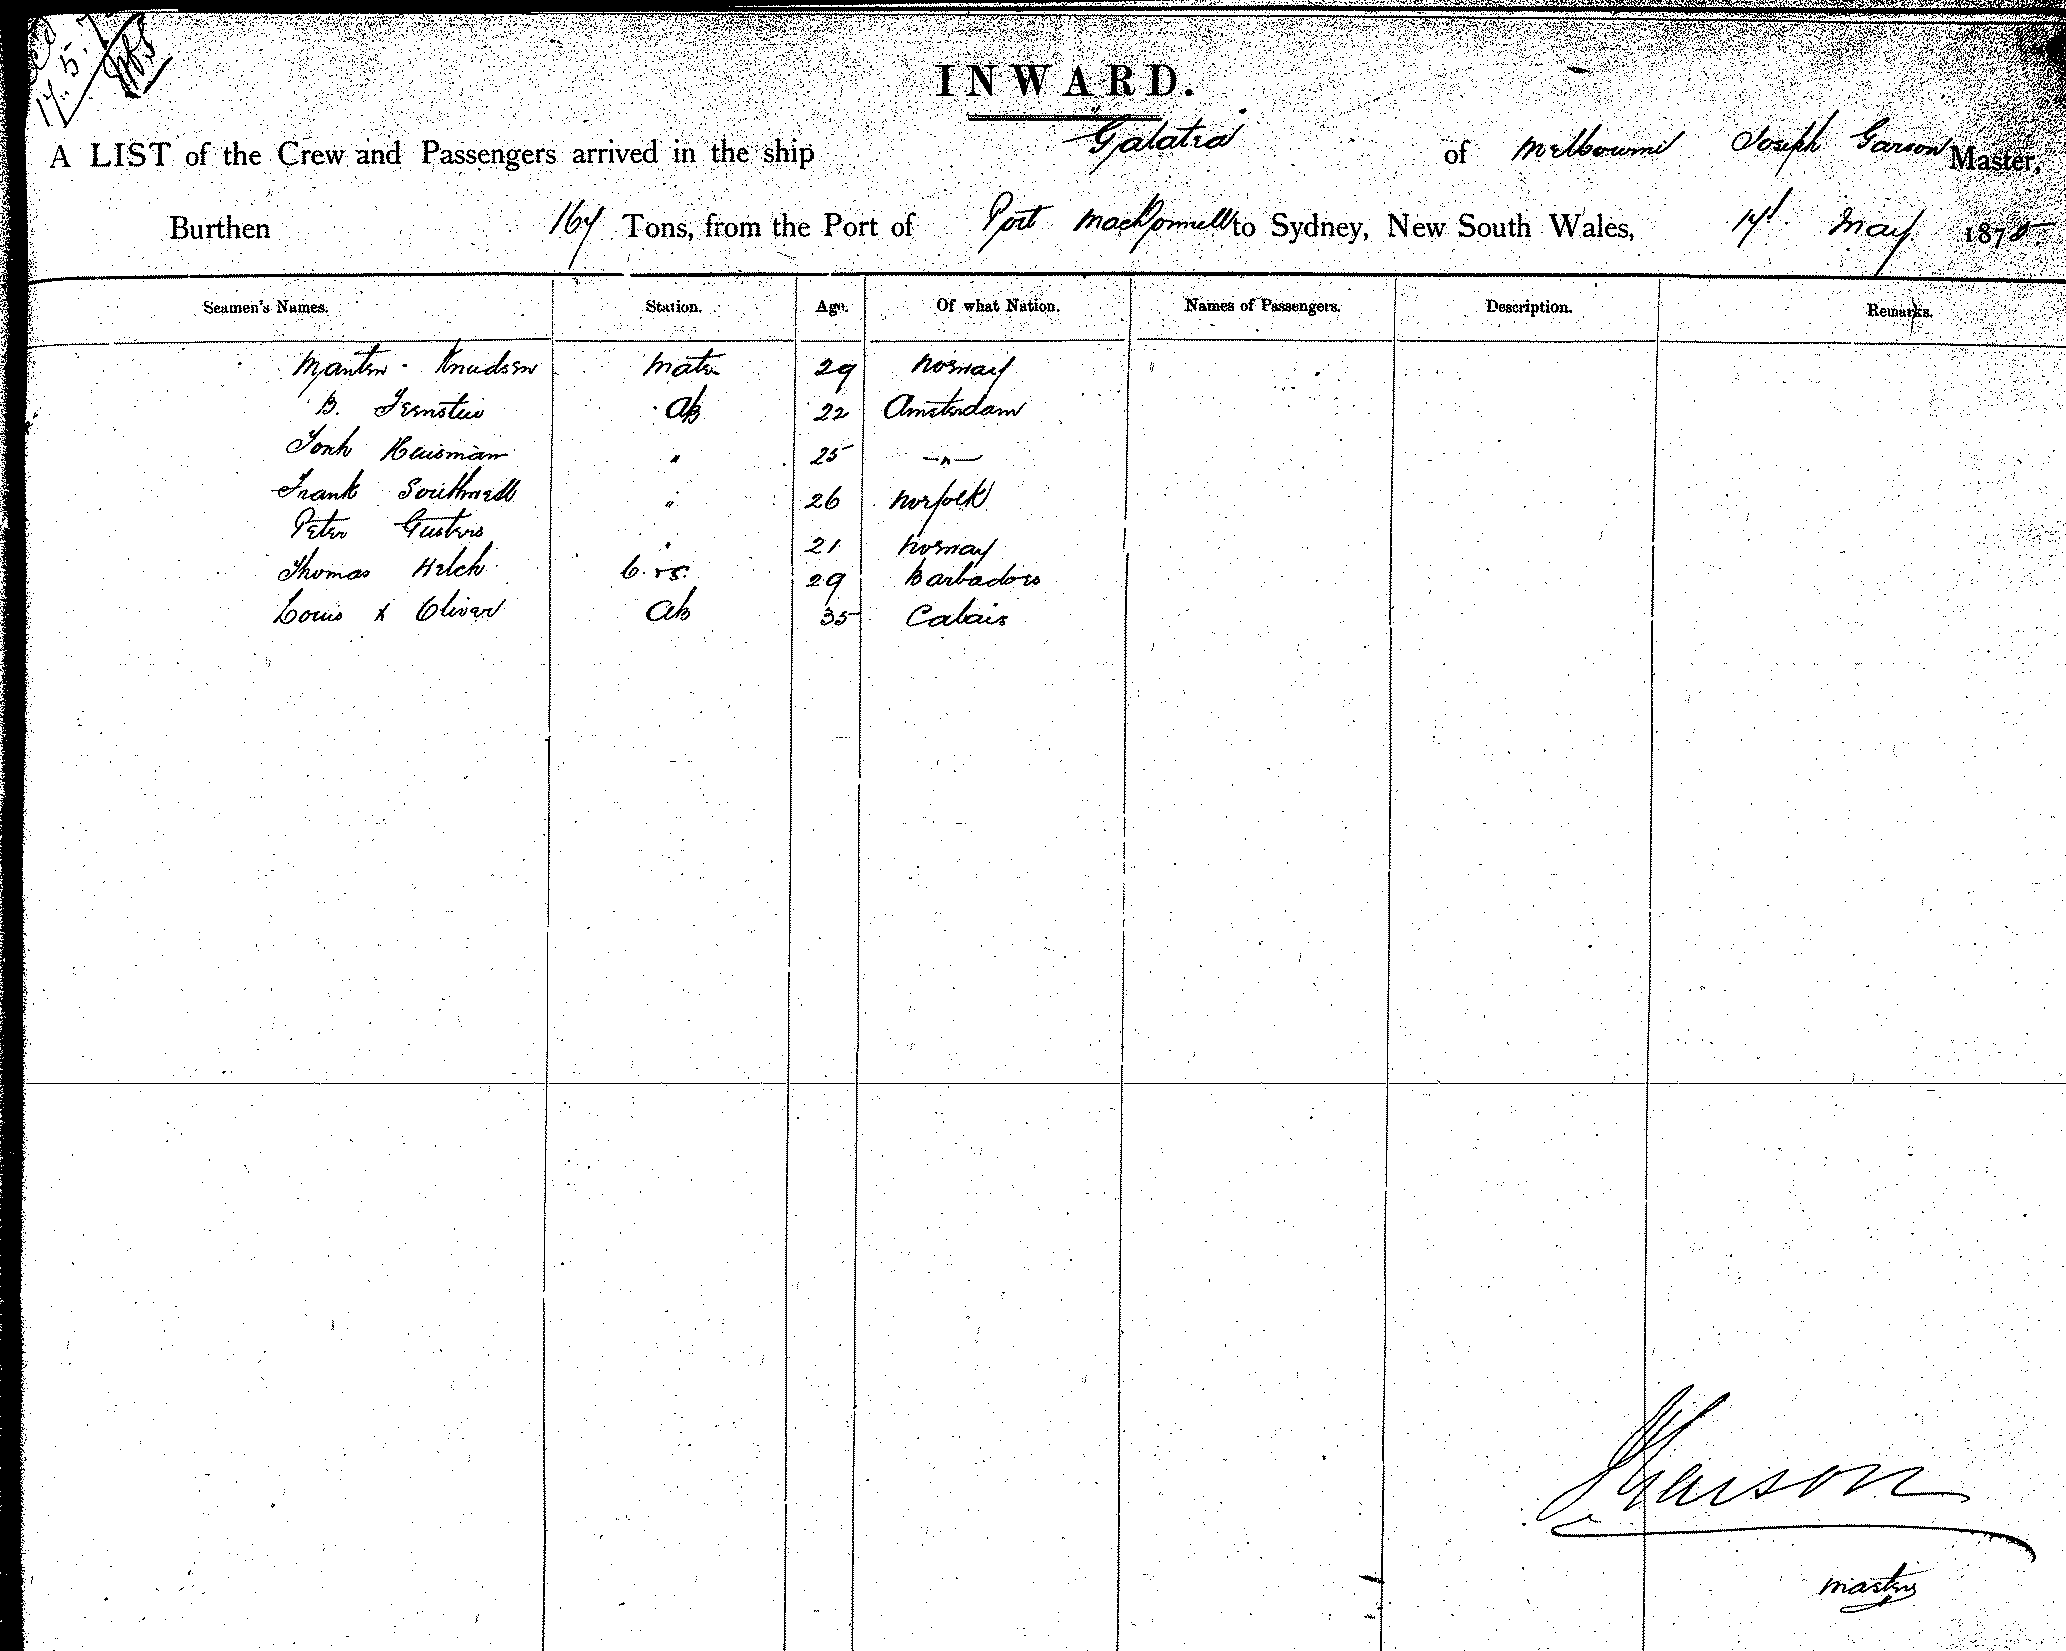 17.5.7
INWARD.
A LIST of the Crew and Passengers arrived in the ship Galatea of Melbourne Joseph Garson Master,
Burthen 167 Tons, from the Port of Port MacDonnell to Sydney, New South Wales, 17th May 1875
Seamen's Names. Station. Age. Of what Nation. Names of Passengers. Description. Remarks.
Knudsen Mate 29 Norway
B. AB 22 Amsterdam
Huisman " 25 —"—
Frank Southwell " 26 Norfolk
Peter " 21 Norway
Thomas Welch C &S. 29 Barbadoes
Louis x Oliver AB 35 Calais
JGarson
master